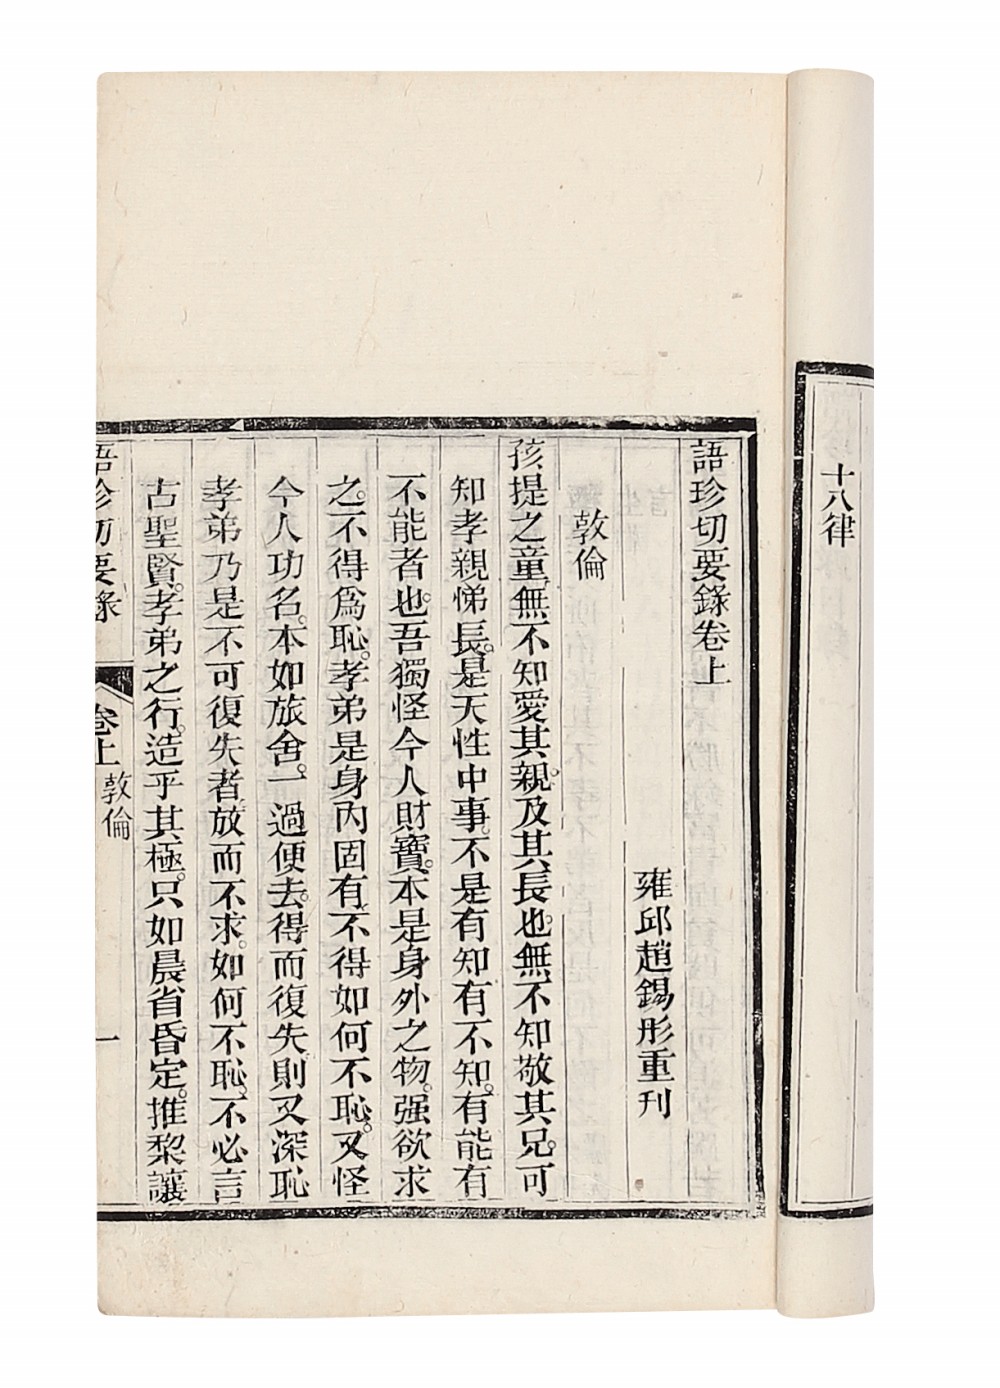 十八律
語珍切要錄卷上
雍邱趙錫彤重刊
敦倫
孩提之童無不知愛其親。及其長也。無不知敬其兄。可
知孝親悌長。是天性中事。不是有知有不知。有能有
不能者也。吾獨怪今人財寶。本是身外之物。强欲求
之。不得爲恥。孝弟是身內固有。不得如何不恥。又怪
今人功名。本如旅舍。一過便去。得而復失則又深恥
孝弟乃是不可復失者放而不求。如何不恥。不必言
古聖賢。孝弟之行。造乎其極。只如晨省昏定。推棃讓
語珍切要錄
卷上
敦倫
一